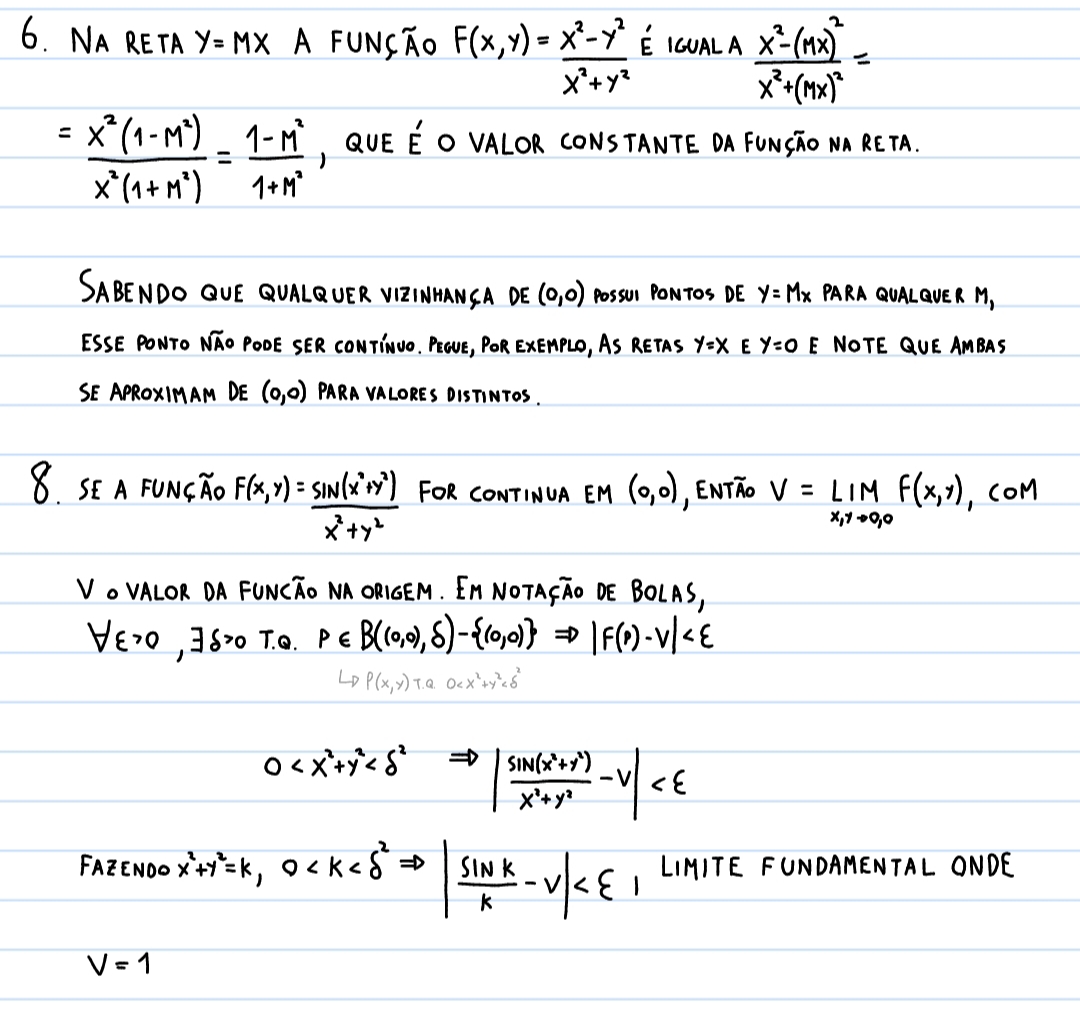 6. NA RETA Y=MX A FUNÇÃO F(X,Y) = X²-Y² / X²+Y² É IGUAL A X²-(MX)² / X²+(MX)² =
= X²(1-M²) / X²(1+M²) = 1-M² / 1+M², QUE É O VALOR CONSTANTE DA FUNÇÃO NA RETA.
SABENDO QUE QUALQUER VIZINHANÇA DE (0,0) POSSUI PONTOS DE Y=MX PARA QUALQUER M,
ESSE PONTO NÃO PODE SER CONTÍNUO. PEGUE, POR EXEMPLO, AS RETAS Y=X E Y=0 E NOTE QUE AMBAS
SE APROXIMAM DE (0,0) PARA VALORES DISTINTOS.
8. SE A FUNÇÃO F(X,Y) = SIN(X²+Y²) / X²+Y² FOR CONTINUA EM (0,0), ENTÃO V = LIM F(X,Y), COM
X,Y→0,0
V O VALOR DA FUNCÃO NA ORIGEM. EM NOTAÇÃO DE BOLAS,
∀ε>0, ∃δ>0 T.Q. P ∈ B((0,0), δ)-{(0,0)} ⇒ |F(P)-V|<ε
↳ P(X,Y) T.Q 0<X²+Y²<δ²
0<X²+Y²<δ² ⇒ |SIN(X²+Y²) / X²+Y² - V| < ε
FAZENDO X²+Y²=K, 0<K<δ² ⇒ |SIN K / K - V|<ε, LIMITE FUNDAMENTAL ONDE
V=1